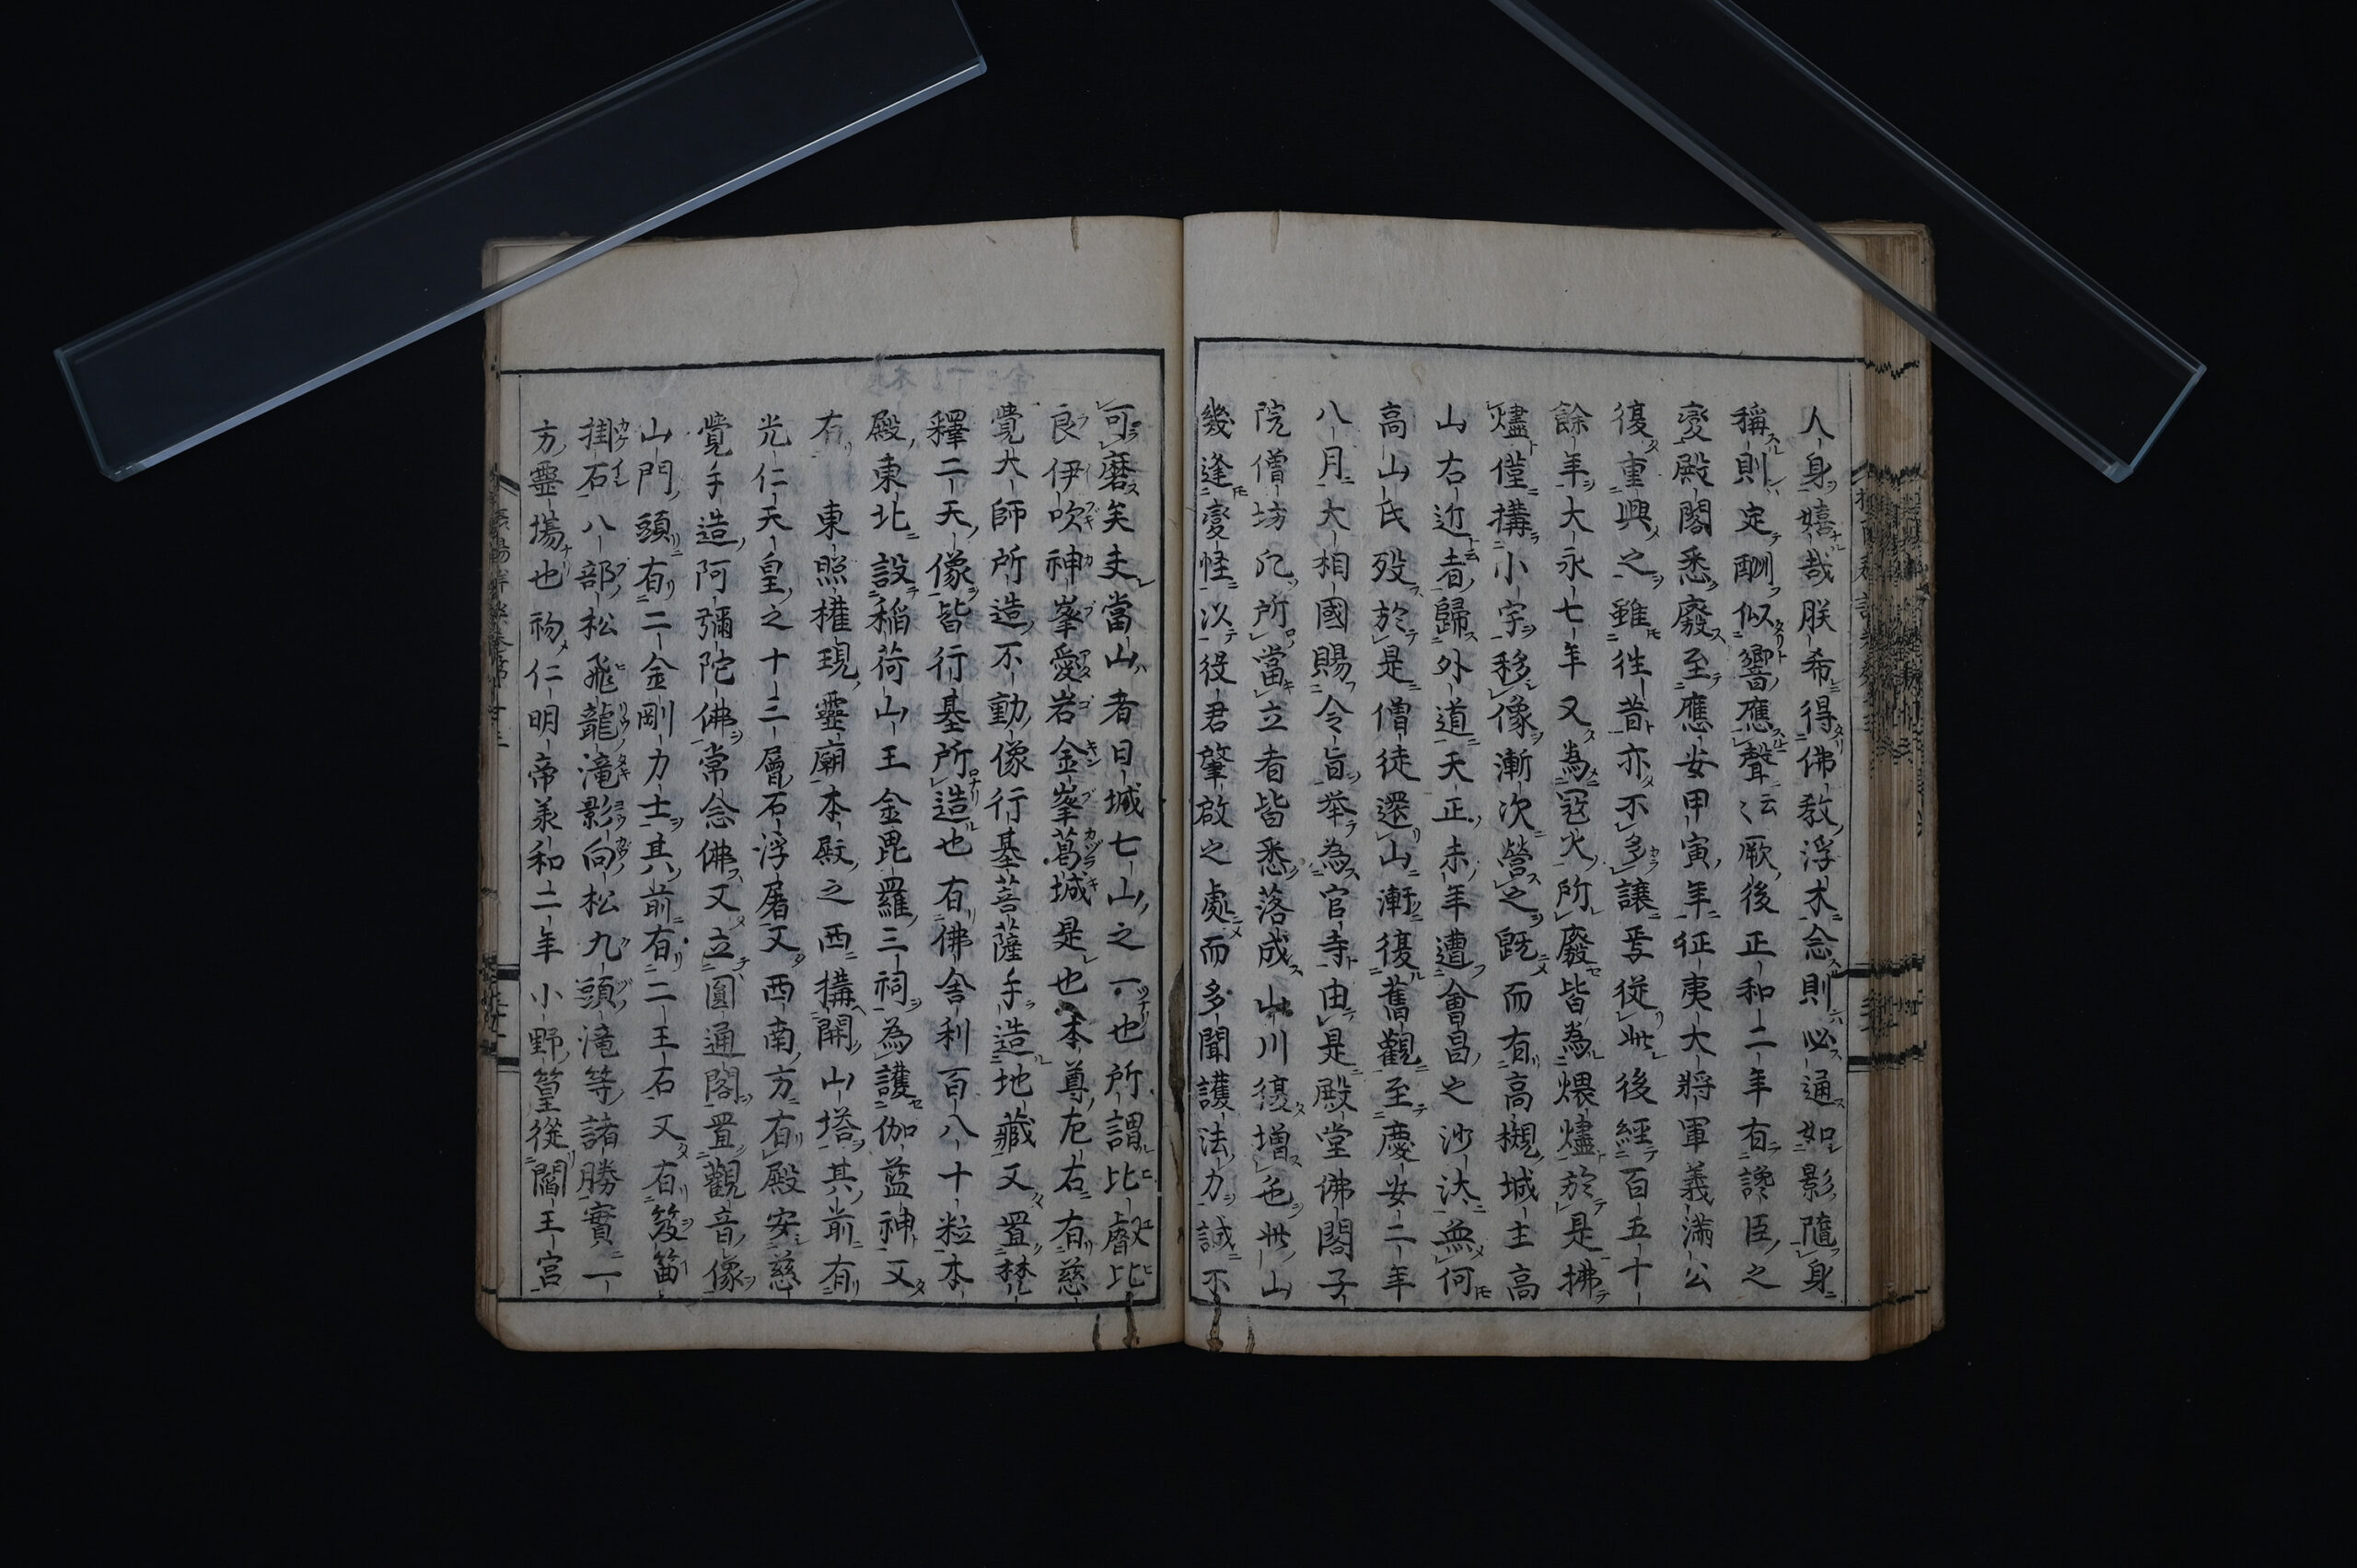 人身嬉哉朕希得佛教浮木念則必通如影隨身
稱則定酬似響應聲云云厥後正和二年有讒臣之
變殿閣悉廢至應安甲寅年征夷大將軍義滿公
復重興之雖徃昔亦不多讓焉從此後經百五十
餘年大永七年又為冦火所廢皆為煨燼於是拂
燼僅搆小宇移像漸次營之既而有高槻城主高
山右近者歸外道天正未年遭會昌之沙汰無何
高山氏歿於是僧徒還山漸復舊觀至慶安二年
八月大相國賜令旨举為官寺由是殿堂佛閣子
院僧坊凢所當立者皆悉落成山川復增色此山
幾逢變怪以役君肇啟之處而多聞護法力誠不
可磨矣夫當山者日城七山之一也所謂比叡比
良伊吹神峯愛岩金峯葛城是也本尊左右有慈
覺大師所造不動像行基菩薩手造地藏又置梵
釋二天像皆行基所造也有佛舍利百八十粒本
殿東北設稲荷山王金毘羅三祠為護伽藍神又
右東照權現靈廟本殿之西搆開山塔其前有
光仁天皇之十三層石浮屠又西南方有殿安慈
覺手造阿彌陀佛常念佛又立圓通閣置觀音像
山門頭有二金剛力士其前有二王石又有笈笛
掛石八部松飛龍滝影向松九頭滝等諸勝實一
方靈場也礽仁明帝羕和二年小野篁從閻王宮